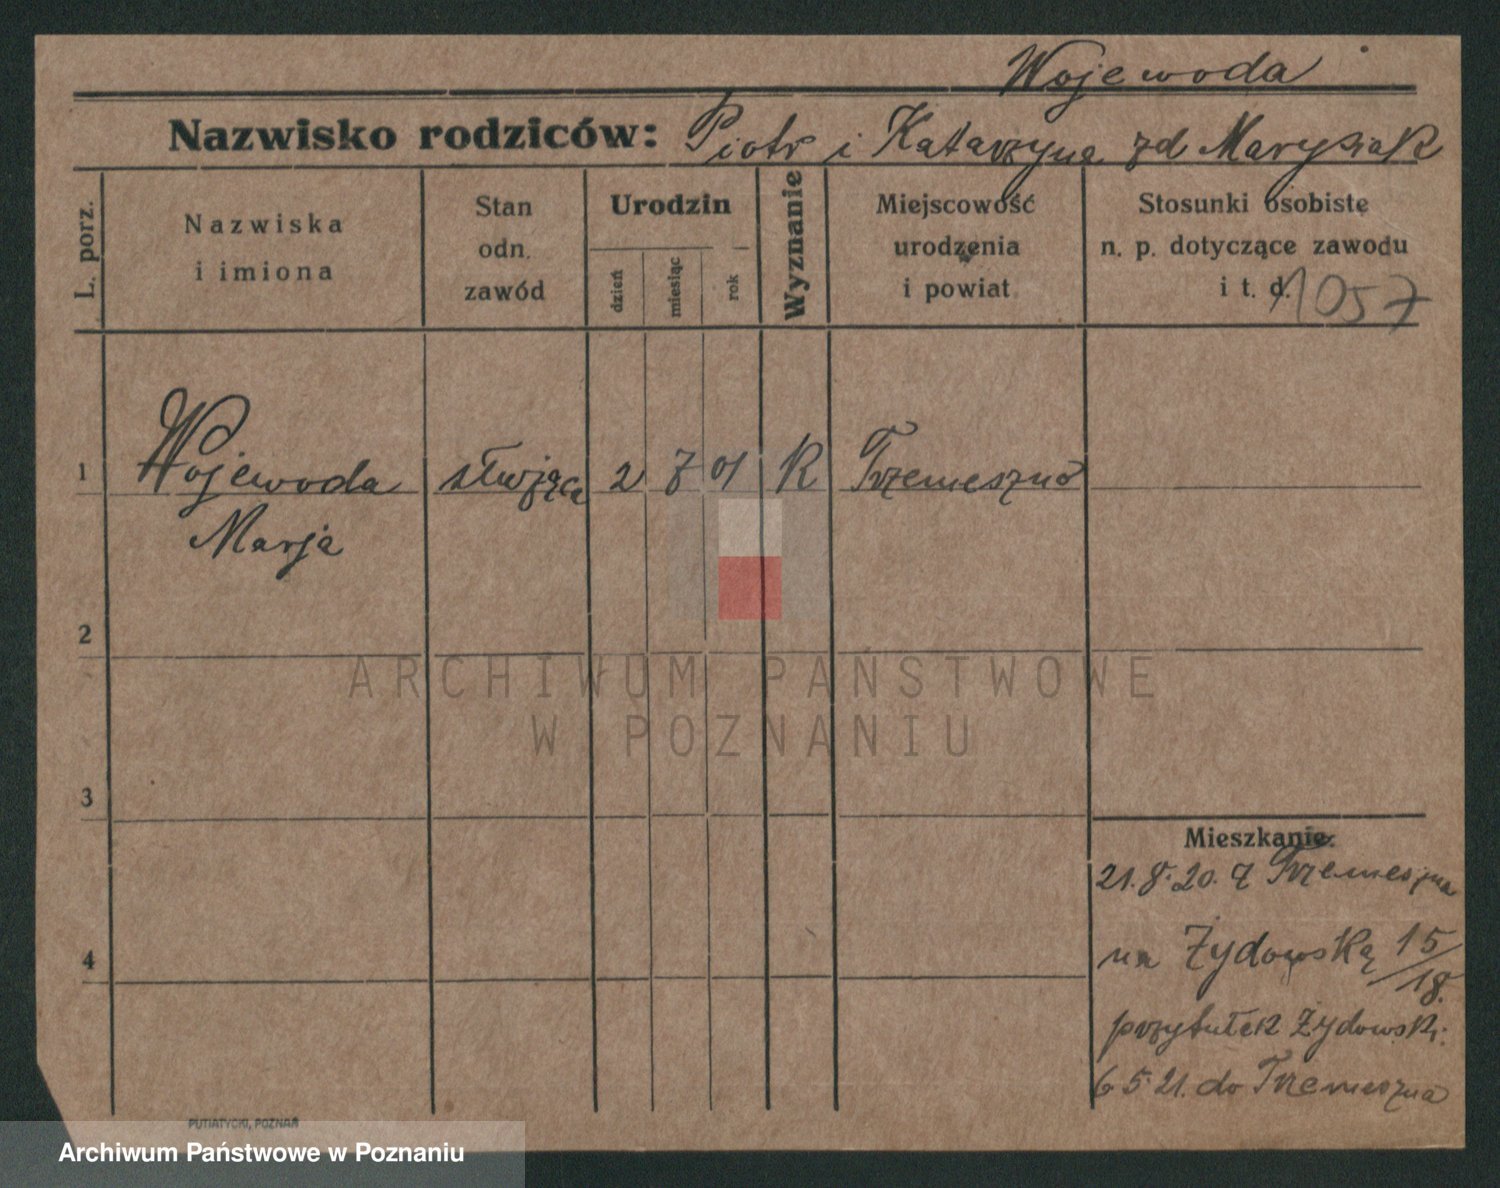 Wojewoda
Nazwisko rodziców: Piotr i Katarzyna zd Marysiak
L. porz.
Nazwiska
i imiona
Stan
odn.
zawód
Urodzin
dzień
miesiąc
rok
Wyznanie
Miejscowość
urodzenia
i powiat
Stosunki osobiste
n. p. dotyczące zawodu
i t. d.
1057
1 Wojewoda służąca 2 7 01 K Trzemeszno
Marja
2
3
4
Mieszkanie:
21.8.20. z Trzemeszna
na Żydowską 15/18.
przytułek Żydowski.
6 5 21. do Trzemeszna
PUTIATYCKI, POZNAŃ
ARCHIWUM PAŃSTWOWE
W POZNANIU
Archiwum Państwowe w Poznaniu